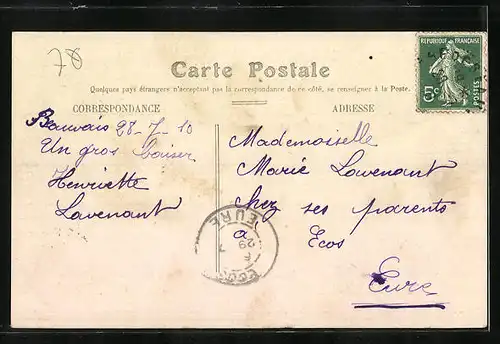 78
Carte Postale
Quelques pays étrangers n'acceptant pas la correspondance de ce côté, se renseigner à la Poste.
CORRESPONDANCE
ADRESSE
REPUBLIQUE FRANÇAISE
5c
POSTES
Beauvais 28-7-10
Un gros baiser
Henriette
Lavenant
Mademoiselle
Marie Lavenant
chez ses parents
à Ecos
Eure
EURE
29 7